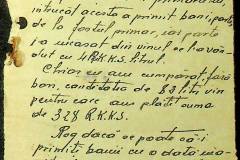 întrucât acesta a primit bani, parte
de la fostul primar, iar parte
a incasat din vinul ce l-a vân-
dut cu 4 R.K.K.S. litrul.
Chiar eu am cumpărat, fără
bon, cantitatea de 82 litri vin
pentru care am plătit suma
de 328 R.K.K.S.
Rog dacă se poate să-i
primiți banii cu o dată